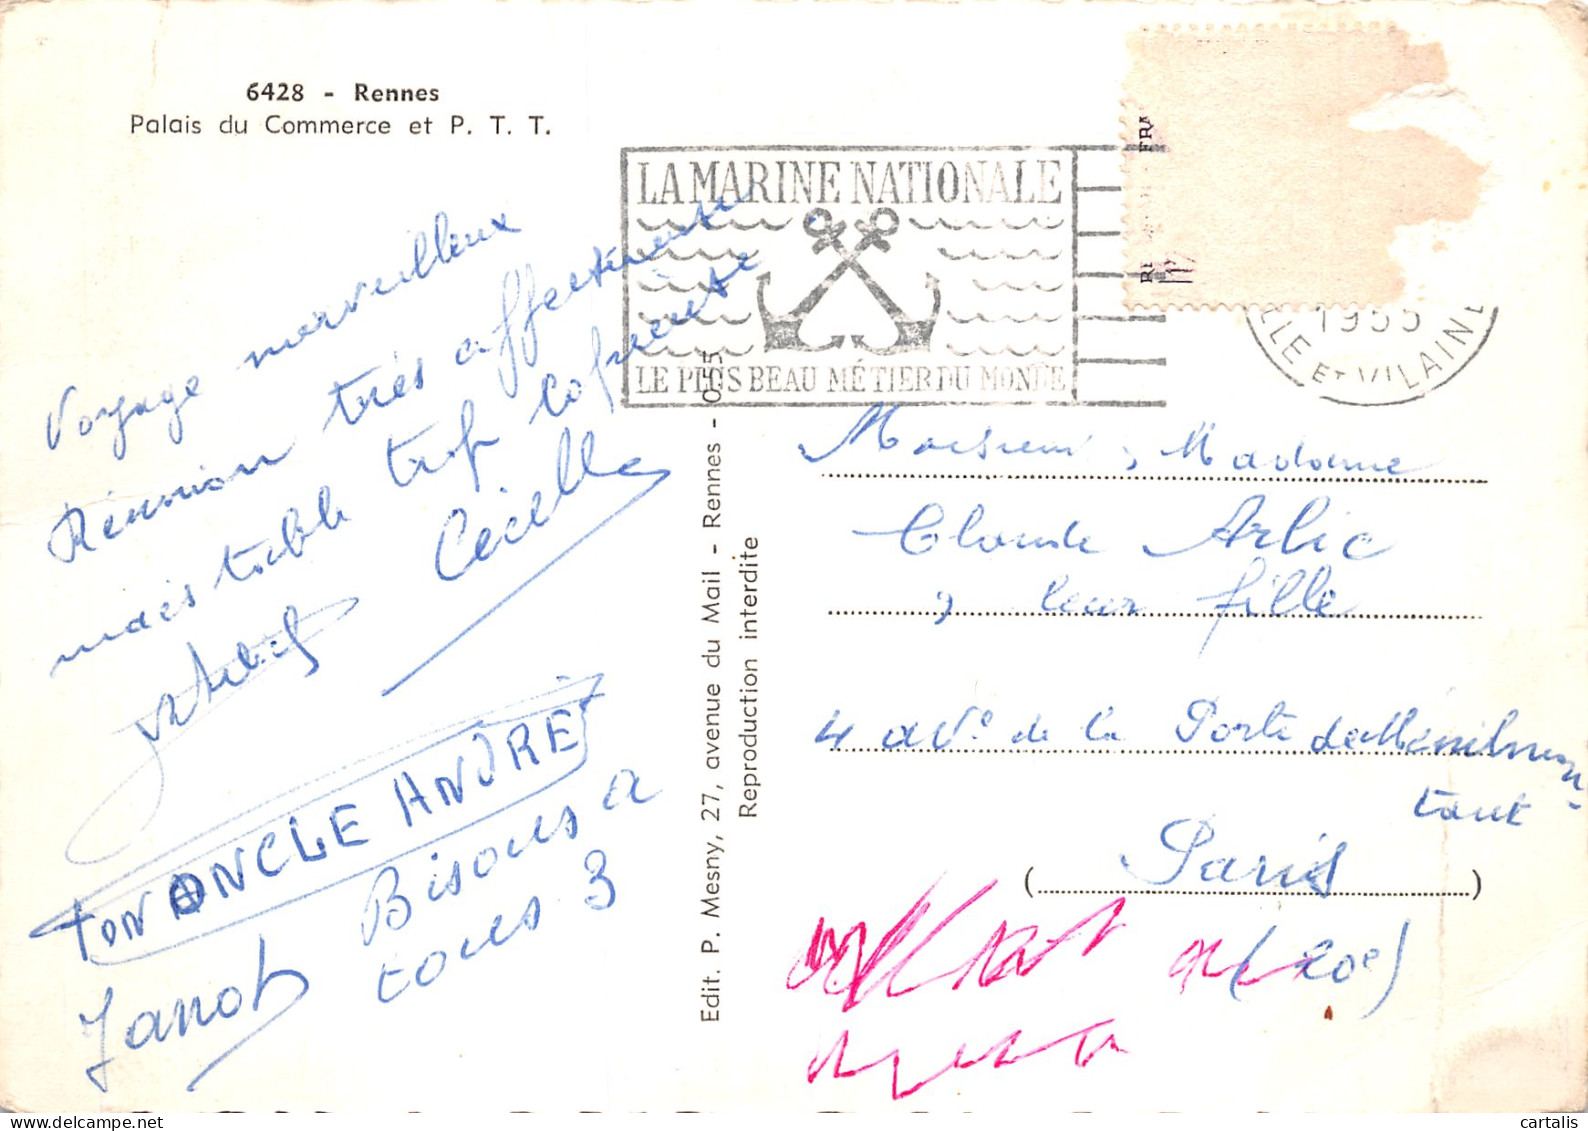 6428 - Rennes
Palais du Commerce et P. T. T.
LA MARINE NATIONALE
LE PLUS BEAU MÉTIER DU MONDE
FRA
1955
ILLE ET VILAINE
Voyage merveilleux
Réunion très affectueuse
mais table trop copieuse
Cécile
TON ONCLE ANDRÉ
Bisous a
tous 3
Janot
Edit. P. Mesny, 27, avenue du Mail - Rennes - 0.55
Reproduction interdite
Monsieur, Madame
Claude Arlic
, leur fille
4 av.e de la Porte de Ménilmon-
tant
Paris
(20e)